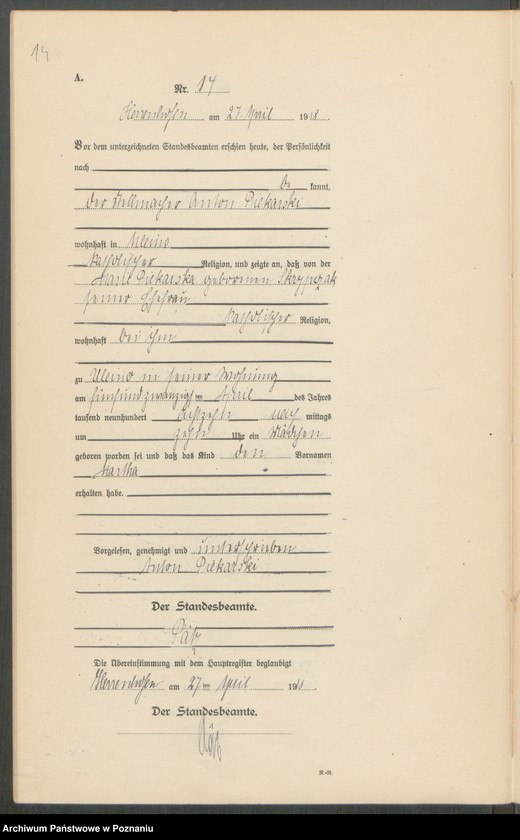 14
A.
Nr. 14
Herrenhofen am 27 April 1918.
Vor dem unterzeichneten Standesbeamten erschien heute, der Persönlichkeit
nach
be kannt,
der Stellmacher Anton Piekarski
wohnhaft in Uleino
katholischer Religion, und zeigte an, daß von der
Piekarska geborenen Skrzypczak
seiner Ehefrau
katholischer Religion,
wohnhaft bei ihm
zu Uleino in seiner Wohnung
am fünfundzwanzigsten April des Jahres
tausend neunhundert achtzehn nach mittags
um zehn Uhr ein Mädchen
geboren worden sei und daß das Kind den Vornamen
Martha
erhalten habe.
Vorgelesen, genehmigt und unterschrieben
Anton Piekarski
Der Standesbeamte.
Die Übereinstimmung mit dem Hauptregister beglaubigt
Herrenhofen am 27ten April 1918.
Der Standesbeamte.
Archiwum Państwowe w Poznaniu